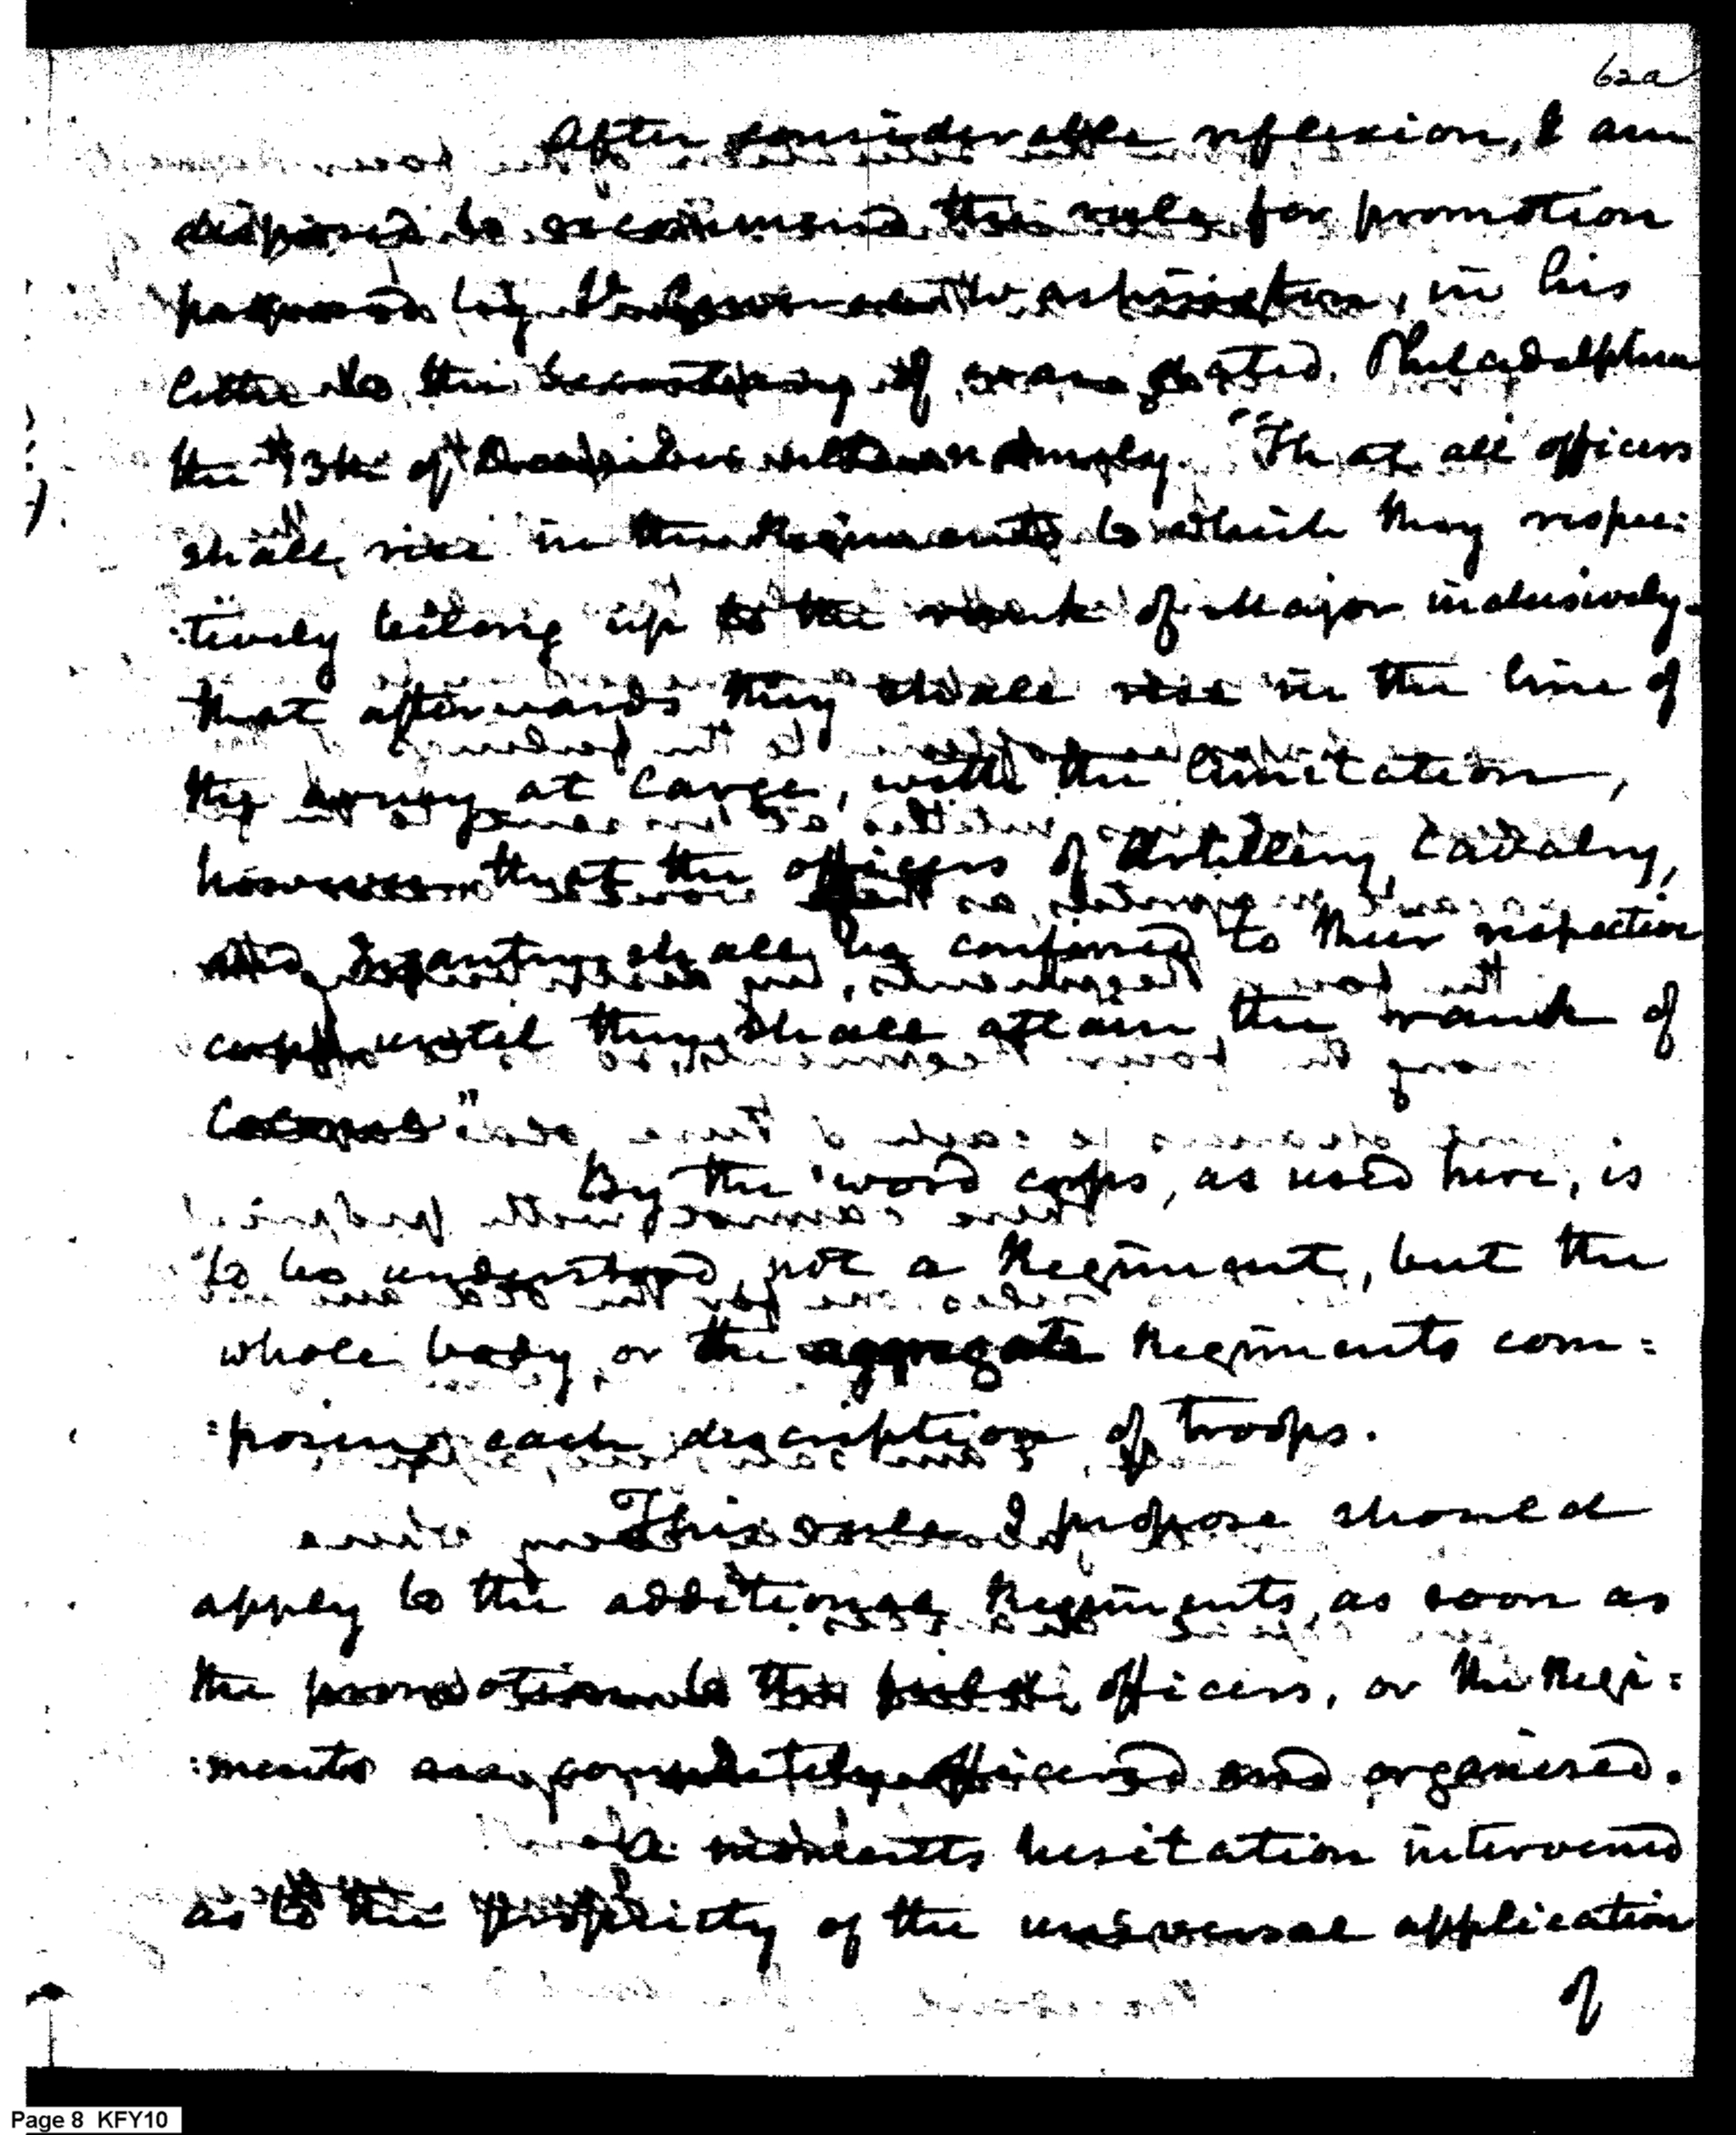 62a
After considerable reflexion, I am
disposed to recommend the rule for promotion
proposed by Lt General Washington, in his
letter to the Secretary of war dated, Philadelphia
the 13th of December namely. "That all officers
shall rise in the Regiments to which they respec:
:tively belong up to the rank of Major inclusively.
that afterwards they shall rise in the line of
the army at large, with the limitation,
however that the officers of Artillery, Cavalry,
and Infantry shall be confined to their respective
corps until they shall attain the rank of
Colonel"
By the word corps, as used here, is
to be understood, not a Regiment, but the
whole body, or the aggregate Regiments com:
:posing each description of troops.
This rule I propose should
apply to the additional Regiments, as soon as
the promotions to the officers, or the Regi:
:ments are completely officered and organised.
A moments hesitation intervened
as to the propriety of the universal application
of
Page 8 KFY10